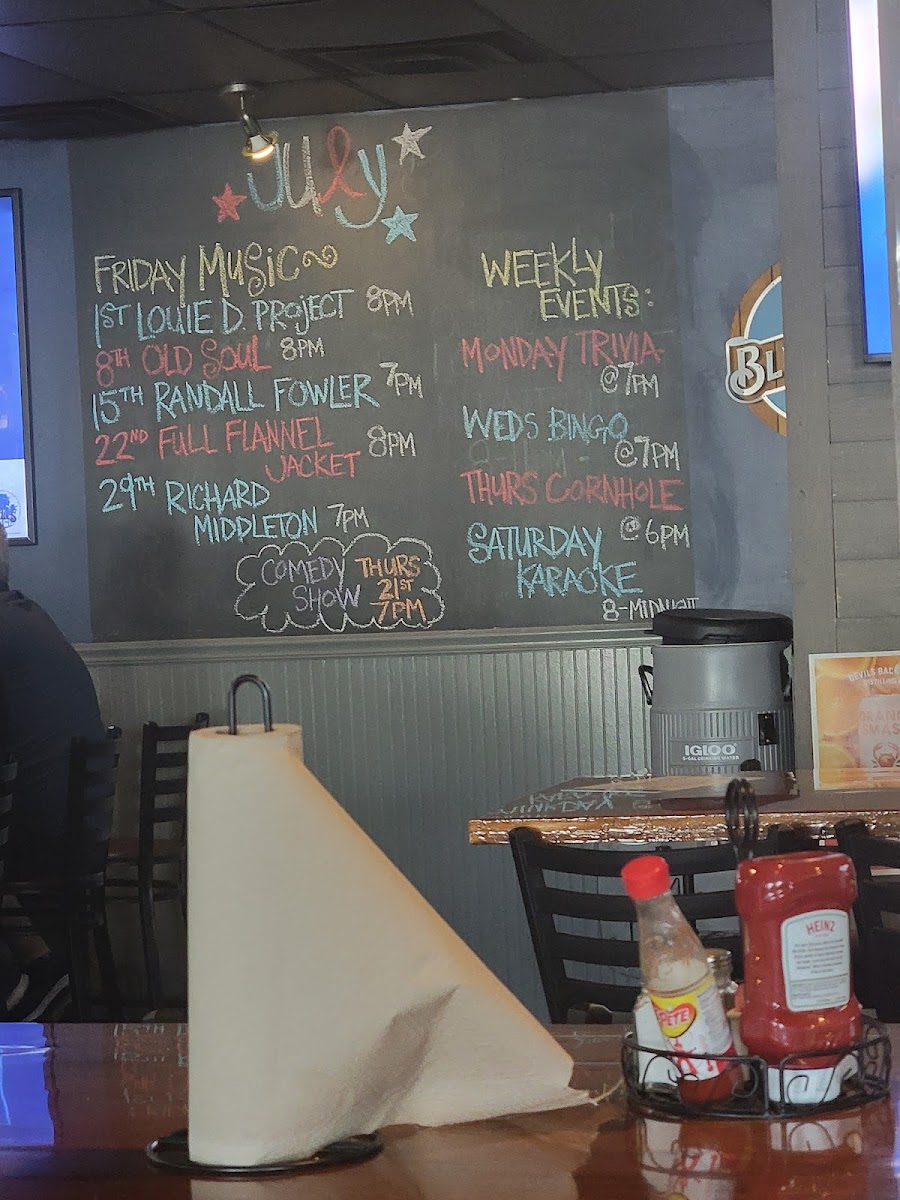 July
FRIDAY MUSIC
1ST LOUIE D. PROJECT 8PM
8TH OLD SOUL 8PM
15TH RANDALL FOWLER 7PM
22ND FULL FLANNEL
JACKET 8PM
29TH RICHARD
MIDDLETON 7PM
COMEDY
SHOW
THURS
21ST
7PM
WEEKLY
EVENTS:
MONDAY TRIVIA
@7PM
WEDS BINGO
@7PM
THURS CORNHOLE
@6PM
SATURDAY
KARAOKE
8-MIDNIGHT
BL
IGLOO
DEVILS BACK
HEINZ
PETE